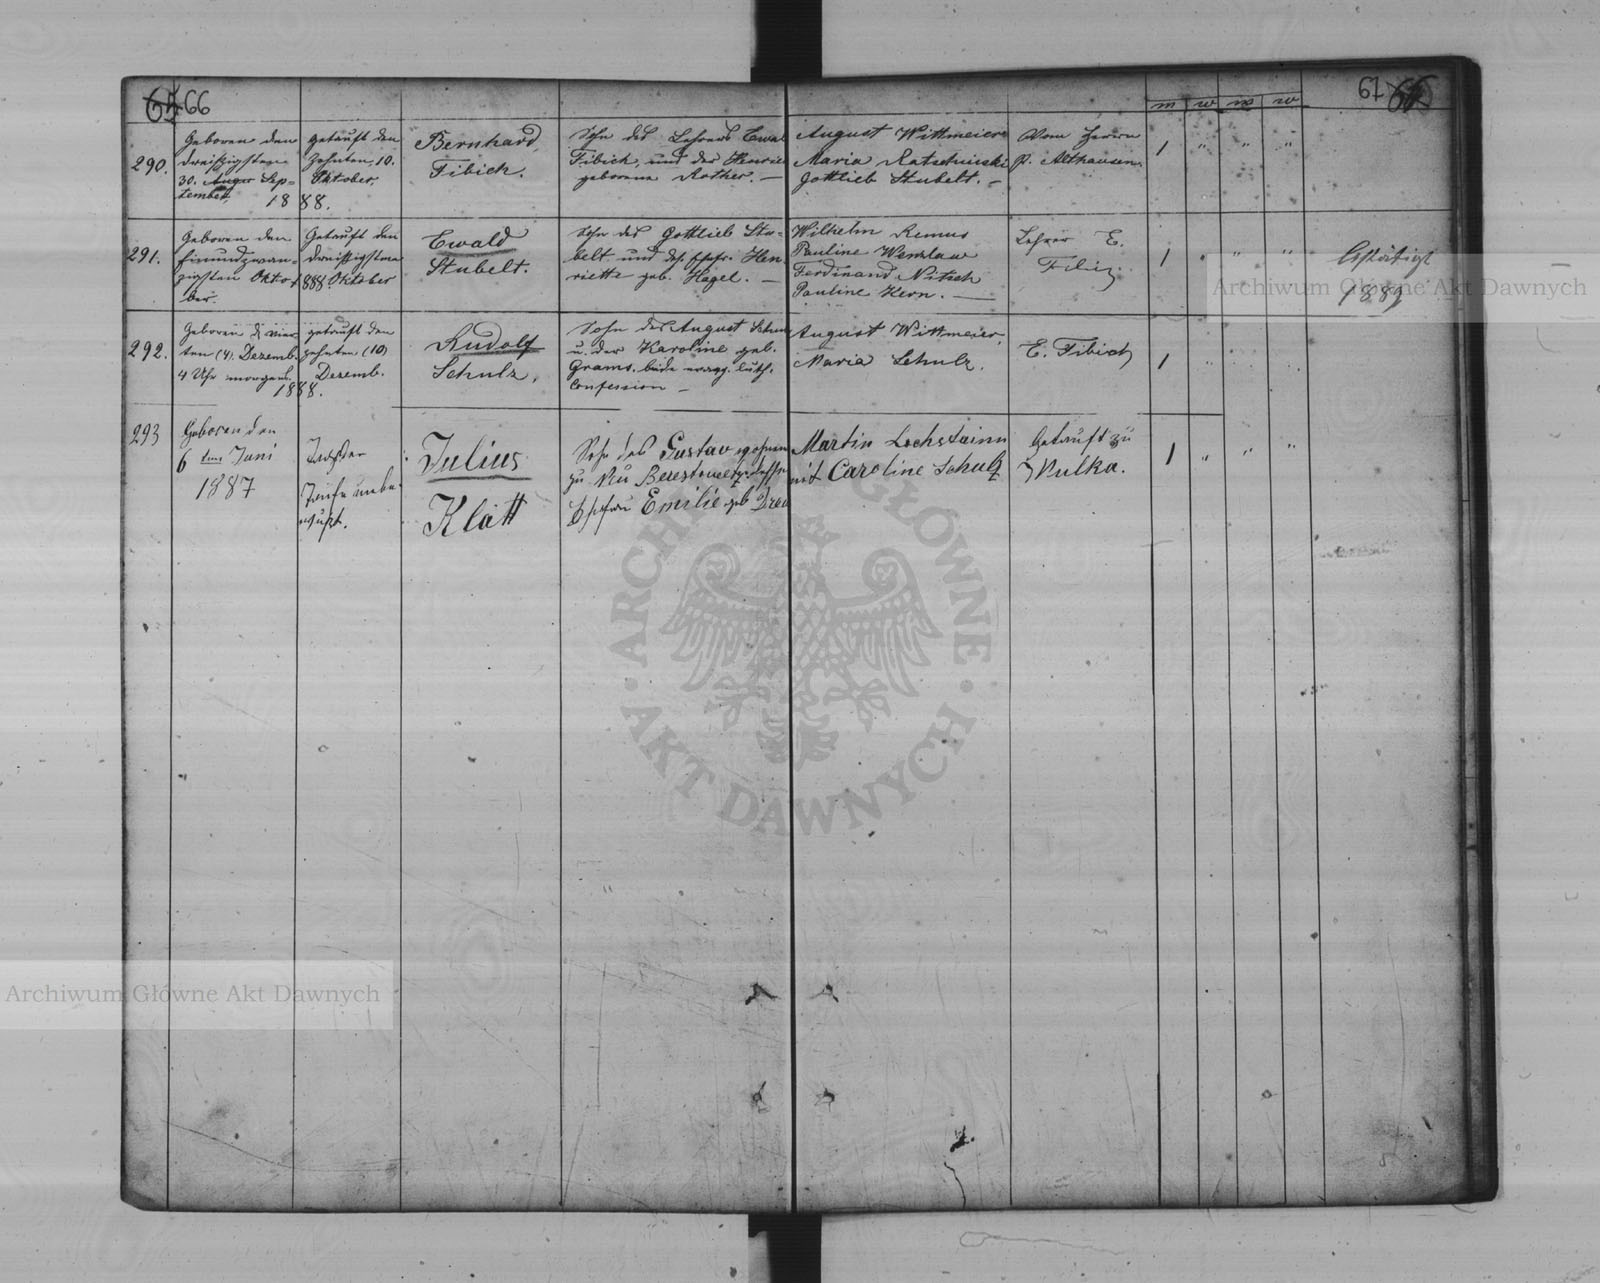 65 66
67 66
m w m w
290.
Geboren den
dreißigsten
30. August Sep=
tember,
getauft den
Zehnten, 10.
Oktober,
1888.
Bernhard
Fibich.
Sohn des Lehrers Ewal
Fibich, und der Henrie
geborene Rother. —
August Wittmeier
Maria Ratschinski
Gottlieb Stubelt. —
Vom Herrn
p. Althausen.
1 " " "
291.
Geboren den
Einundzwan=
zigsten Okto=
ber.
Getauft den
dreißigsten
1888. Oktober
Ewald
Stubelt.
Sohn des Gottlieb Stu=
belt und der Ehefr. Hen
riette geb. Hagel. —
Wilhelm Remus
Pauline Wenzlaw
Ferdinand Nitsch
Pauline Kern. —
Lehrer E.
Fibig.
1 " " "
1889
292.
Geboren d. vier
ten (4). Dezemb.
4 Uhr morgens.
getauft den
zehnten (10)
Dezemb.
1888.
Rudolf
Schulz,
Sohn des August Schu
u. der Karoline geb.
Grams, beide evang. luth.
Confession —
August Wittmeier,
Maria Schulz.
E. Fibich
1
293
Geboren den
6 ten Juni
1887
Tag der
Taufe unbe
wußt.
Julius
Klatt
Sohn des Gustav
zu dessen
Ehefrau Emilie geb Drea
Martin Lochstainn
mit Caroline Schulz
Getauft zu
Nulka.
1 " " "
Archiwum Główne Akt Dawnych
ARCHIWUM GŁÓWNE · AKT DAWNYCH ·
Archiwum Główne Akt Dawnych